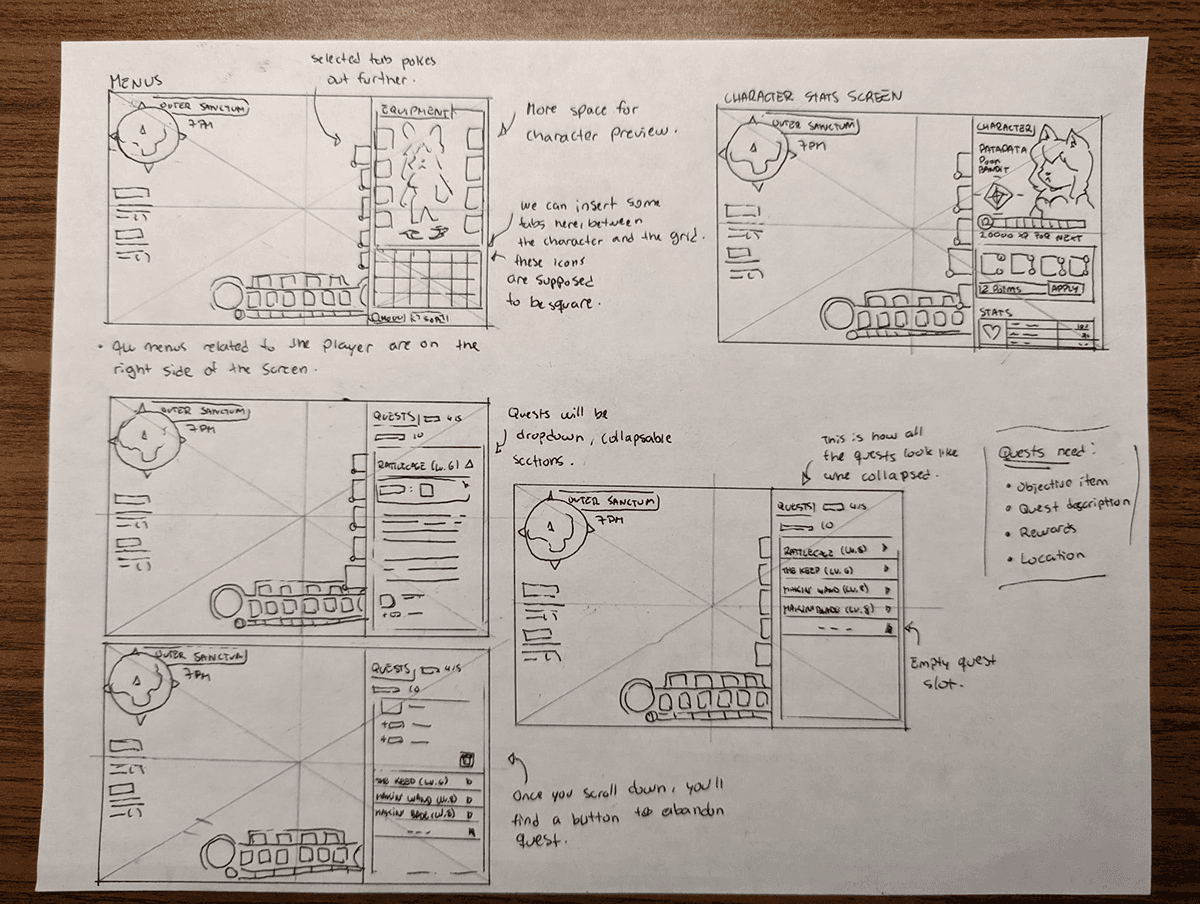 MENUS
selected tab pokes
out further.
OUTER SANCTUM
7PM
EQUIPMENT
MENU
SORT
More space for
character preview.
we can insert some
tabs here, between
the character and the grid.
these icons
are supposed
to be square.
• All menus related to the player are on the
right side of the screen.
CHARACTER STATS SCREEN
OUTER SANCTUM
7PM
CHARACTER
PATAPATA
Poon
BANDIT
12
20000 XP FOR NEXT
12 Points
APPLY
STATS
OUTER SANCTUM
7PM
QUESTS 4/5
10
RATTLECAGE (LV. 6)
Quests will be
dropdown, collapsable
sections.
This is how all
the quests look like
when collapsed.
OUTER SANCTUM
7PM
QUESTS 4/5
10
RATTLECAGE (LV. 8)
THE KEEP (LV. 6)
MAKIN' WAND (LV. 8)
MAKIN' BLADE (LV. 8)
Empty quest
slot.
Quests need:
• Objective item
• Quest description
• Rewards
• Location
OUTER SANCTUM
7PM
QUESTS 4/5
10
THE KEEP (LV. 6)
MAKIN' WAND (LV. 8)
Once you scroll down, you'll
find a button to abandon
quest.